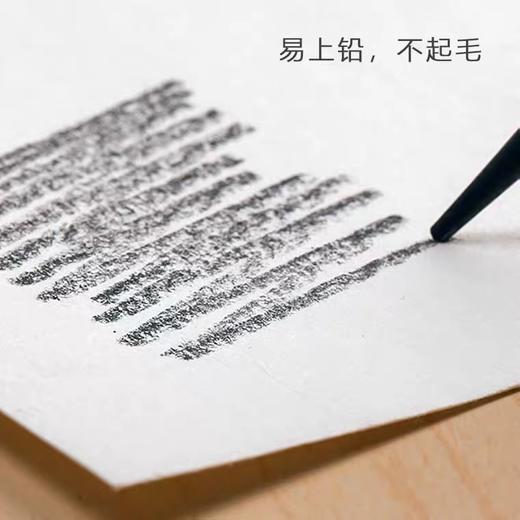 易上铅，不起毛